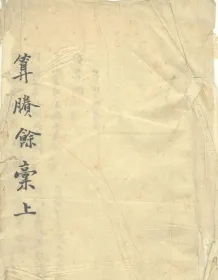 算賸餘稾上